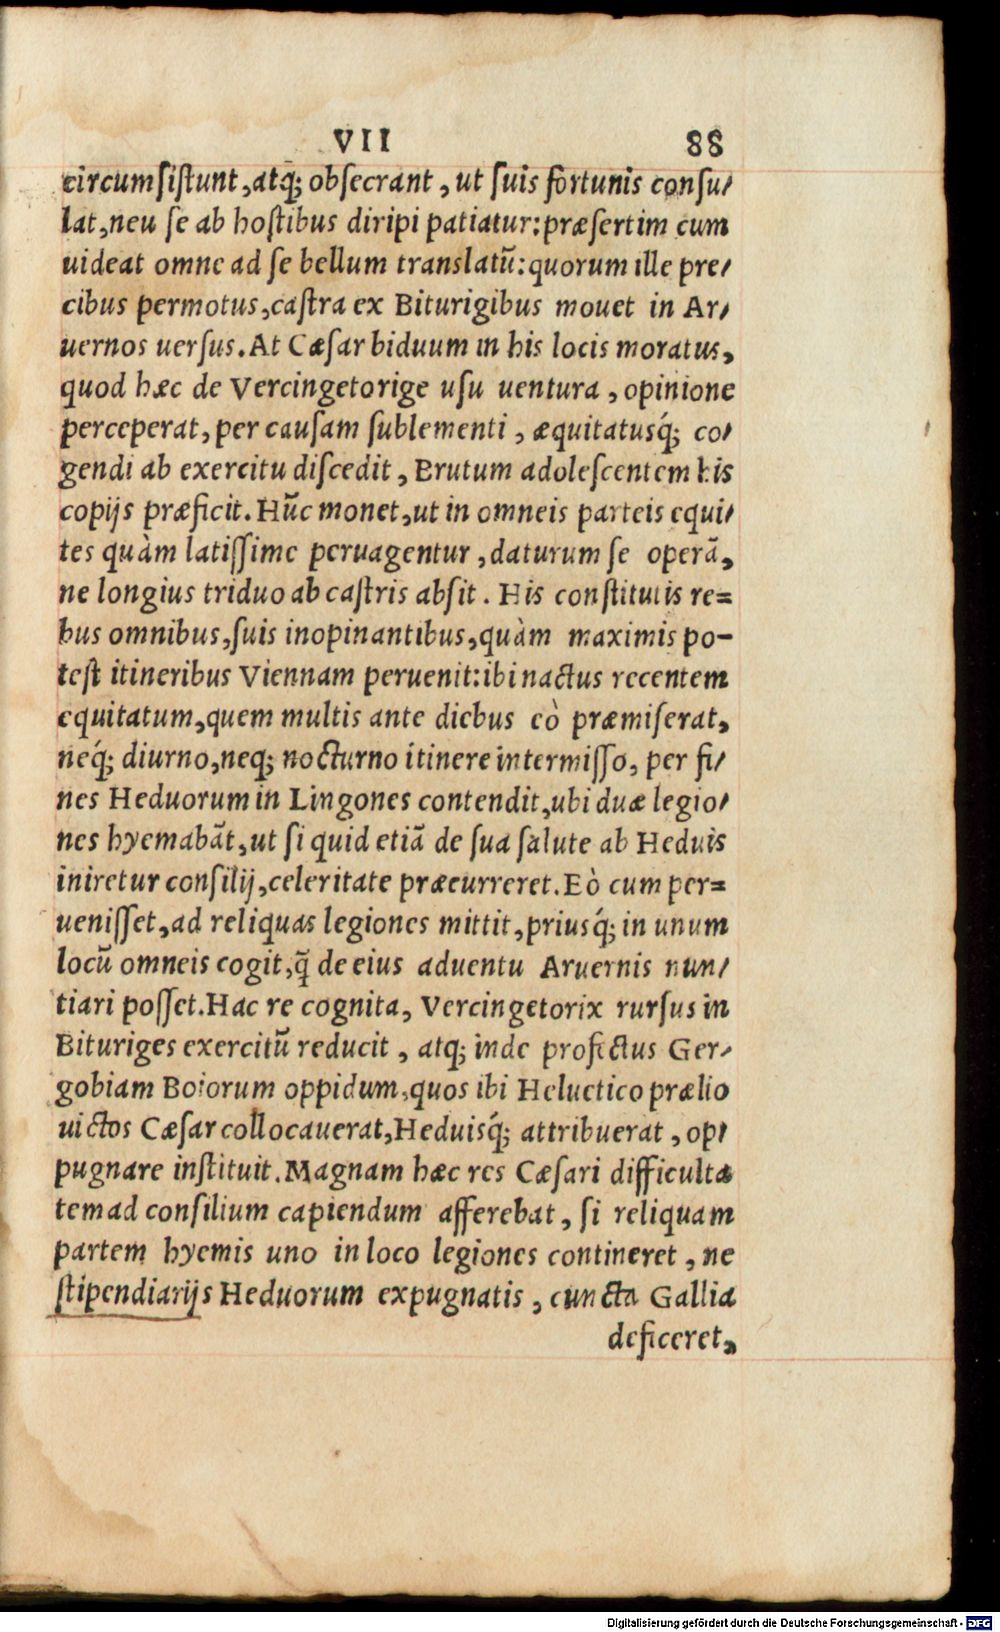 VII 88
circumsistunt, atq; obsecrant, ut suis fortunis consu/
lat, neu se ab hostibus diripi patiatur: præsertim cum
uideat omne ad se bellum translatũ: quorum ille pre/
cibus permotus, castra ex Biturigibus mouet in Ar/
uernos uersus. At Cæsar biduum in his locis moratus,
quod hæc de Vercingetorige usu uentura, opinione
perceperat, per causam sublementi, æquitatusq́; co/
gendi ab exercitu discedit, Brutum adolescentem his
copijs præficit. Hũc monet, ut in omneis parteis equi/
tes quàm latissime peruagentur, daturum se operã,
ne longius triduo ab castris absit. His constitutis re=
bus omnibus, suis inopinantibus, quàm maximis po-
test itineribus Viennam peruenit: ibi nactus recentem
equitatum, quem multis ante diebus eò præmiserat,
neq́; diurno, neq; nocturno itinere intermisso, per fi/
nes Heduorum in Lingones contendit, ubi duæ legio/
nes hyemabãt, ut si quid etiã de sua salute ab Heduis
iniretur consilij, celeritate præcurreret. Eò cum per=
uenisset, ad reliquas legiones mittit, priusq́; in unum
locũ omneis cogit, q̃ de eius aduentu Aruernis nun/
tiari posset. Hac re cognita, Vercingetorix rursus in
Bituriges exercitũ reducit, atq; inde profectus Ger/
gobiam Boiorum oppidum, quos ibi Heluetico prælio
uictos Cæsar collocauerat, Heduisq́; attribuerat, op/
pugnare instituit. Magnam hæc res Cæsari difficulta
tem ad consilium capiendum afferebat, si reliquam
partem hyemis uno in loco legiones contineret, ne
stipendiarijs Heduorum expugnatis, cuncta Gallia
deficeret,
Digitalisierung gefördert durch die Deutsche Forschungsgemeinschaft - DFG